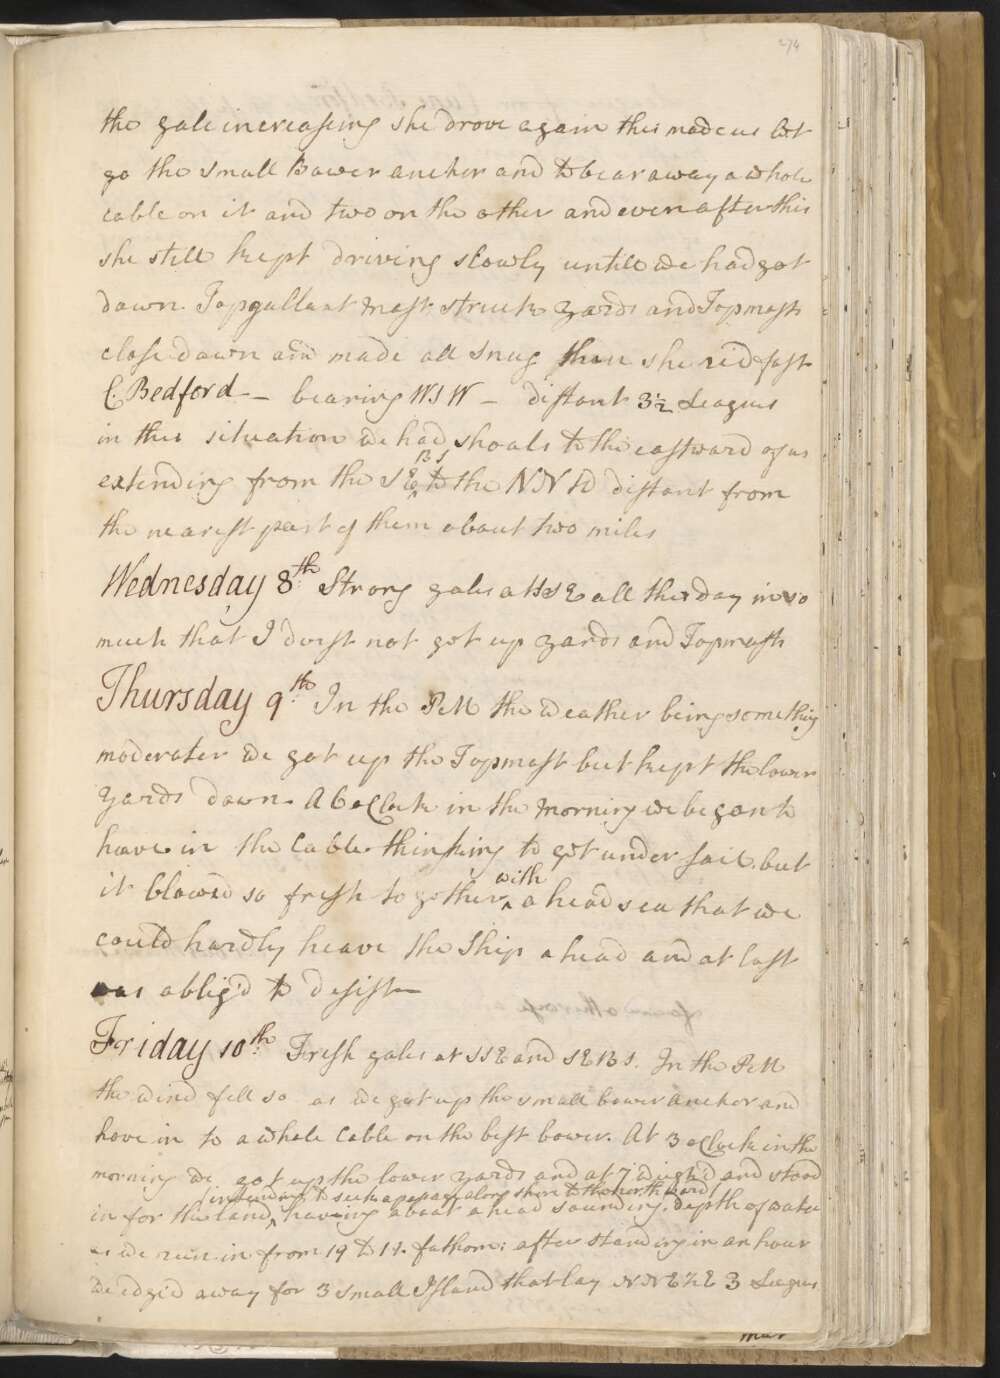 274
the gale increasing she drove again this made us let
go the small Bower anchor and to bear away a whole
cable on it and two on the other and even after this
she still kept driving slowly untill we had got
down Topgallant mast struck yards and Topmasts
close down and made all snug then she rid fast
C. Bedford - bearing WSW - distant 3½ Leagues
in this situation we had shoals to the eastward of us
extending from the SEBS to the NNW distant from
the nearest part of them about two miles
Wednesday 8th Strong gales at SSE all this day in so
much that I durst not get up yards and Topmasts
Thursday 9th In the PM the weather being something
moderater we got up the Topmast but kept the lower
yards down. At 6 oClock in the morning we began to
heave in the Cable thinking to get under sail but
it blowed so fresh together with a head sea that we
could hardly heave the Ship a head and at last
was oblig'd to desist
Friday 10th Fresh gales at SSE and SEBS. In the PM
the wind fell so as we got up the small bower anchor and
hove in to a whole Cable on the best bower. At 3 oClock in the
morning we got up the lower yards and at 7 weigh'd and stood
(intending to seek a passage along shore to the northward)
in for the land, having a boat a head sounding. depth of water
as we run in from 19 to 12 fathoms: after standing in an hour
we edge'd away for 3 small Island that lay NNE½E 3 Leagues